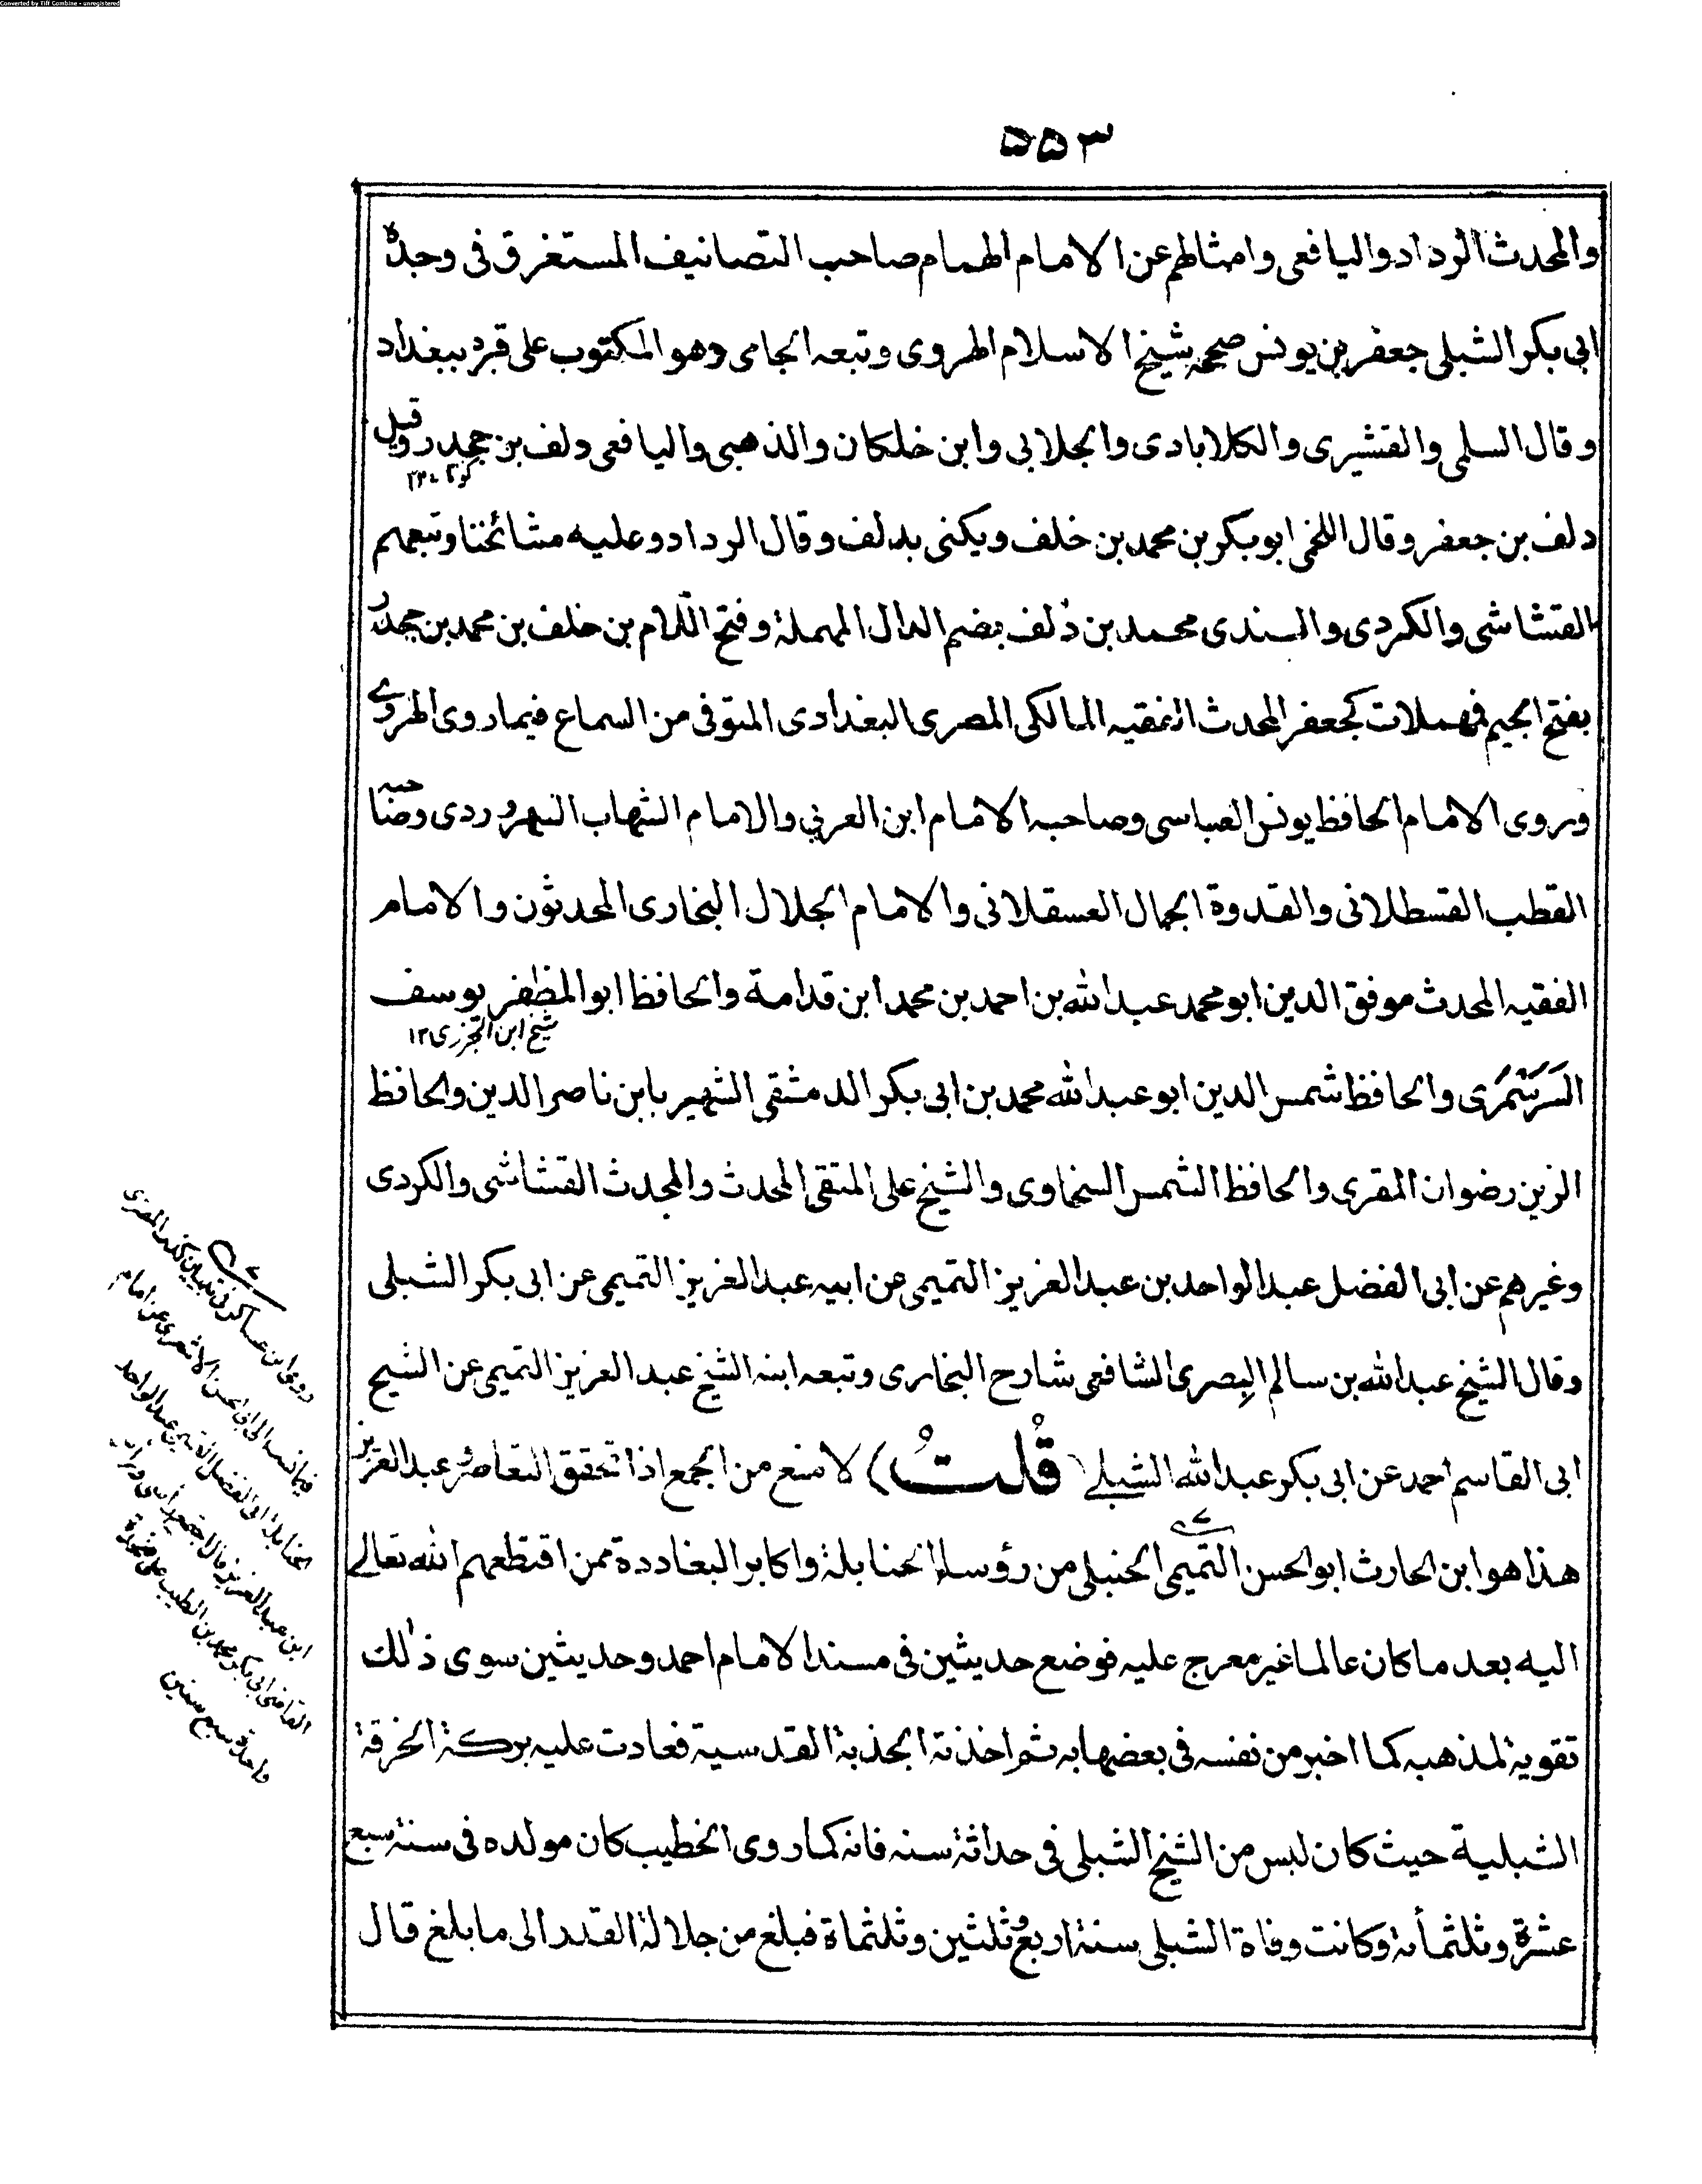 Converted by Tiff Combine - unregistered
۵۵۳
والمحدث الرداد واليافعى وامثالهم عن الامام الهمام صاحب التصانيف المستغرق فى وجده
ابى بكر الشبلى جعفر بن يونس صححه شيخ الاسلام الهروى وتبعه الجامى وهو المكتوب على قبره ببغداد
وقال السلمى والقشيرى والكلابادى والجلابى وابن خلكان والذهبى واليافعى دلف بن جحدر وقيل
دلف بن جعفر وقال اللخمى ابو بكر بن محمد بن خلف ويكنى بدلف وقال الرداد وعليه مشائخنا وتبعهم
القشاشى والكردى والسندى محمد بن دُلف بضم الدال المهملة وفتح اللام بن خلف بن محمد بن جحدر
بفتح الجيم فمهملات كجعفر المحدث الفقيه المالكى المصرى البغدادى المتوفى من السماع فيما روى الهروے
وروى الامام الحافظ يونس العباسى وصاحبه الامام ابن العربي والامام الشهاب السهروردى وصاحبه
القطب القسطلانى والقدوة الجمال العسقلانى والامام الجلال البخارى المحدثون والامام
الفقيه المحدث موفق الدين ابو محمد عبد الله بن احمد بن محمد ابن قدامة والحافظ ابو المظفر يوسف
شيخ ابن الجزرى ۱۲
السَرَمَّرى والحافظ شمس الدين ابو عبد الله محمد بن ابى بكر الدمشقى الشهير بابن ناصر الدين والحافظ
الزين رضوان المقرى والحافظ الشمس السخاوى والشيخ على المتقى المحدث والمحدث القشاشى والكردى
وغيرهم عن ابى الفضل عبد الواحد بن عبد العزيز التميمى عن ابيه عبد العزيز التميمى عن ابى بكر الشبلى
وقال الشيخ عبد الله بن سالم البصرى الشافعى شارح البخارى وتبعه ابنه الشيخ عبد العزيز التميمى عن الشيخ
ابى القاسم احمد عن ابى بكر عبد الله الشبلے (قُلتُ) لا منع من الجمع اذا تحقق التعاصر وعبد العزيز
هذا هو ابن الحارث ابو الحسن التميمى الحنبلى من رؤساء الحنابلة واكابر البغاددة ممن اقتطعهم الله تعالے
اليه بعد ما كان عالما غير معرج عليه فوضع حديثين فى مسند الامام احمد وحديثين سوى ذٰلك
تقوية لمذهبه كما اخبر من نفسه فى بعضها به ثم اخذته الجذبة القدسية فعادت عليه بركة الخرقة
الشبلية حيث كان لبس من الشيخ الشبلى فى حداثة سنه فانه كما روى الخطيب كان مولده فى سنة سبع
عشرة وثلثمأئة وكانت وفاة الشبلى سنة اربع وثلثين وثلثمأة فبلغ من جلالة القدر الى ما بلغ قال
روى ابن عساكر فى تبيين كذب المفترى
فيما نسب الى ابى الحسن الاشعرى عن امام
الحنابلة ابى الفضل التميمى عبد الواحد
ابن عبد العزيز قال اجتمع رأسى ورأس
القاضى ابى بكر محمد بن الطيب على مخدة
واحدة سبع سنين